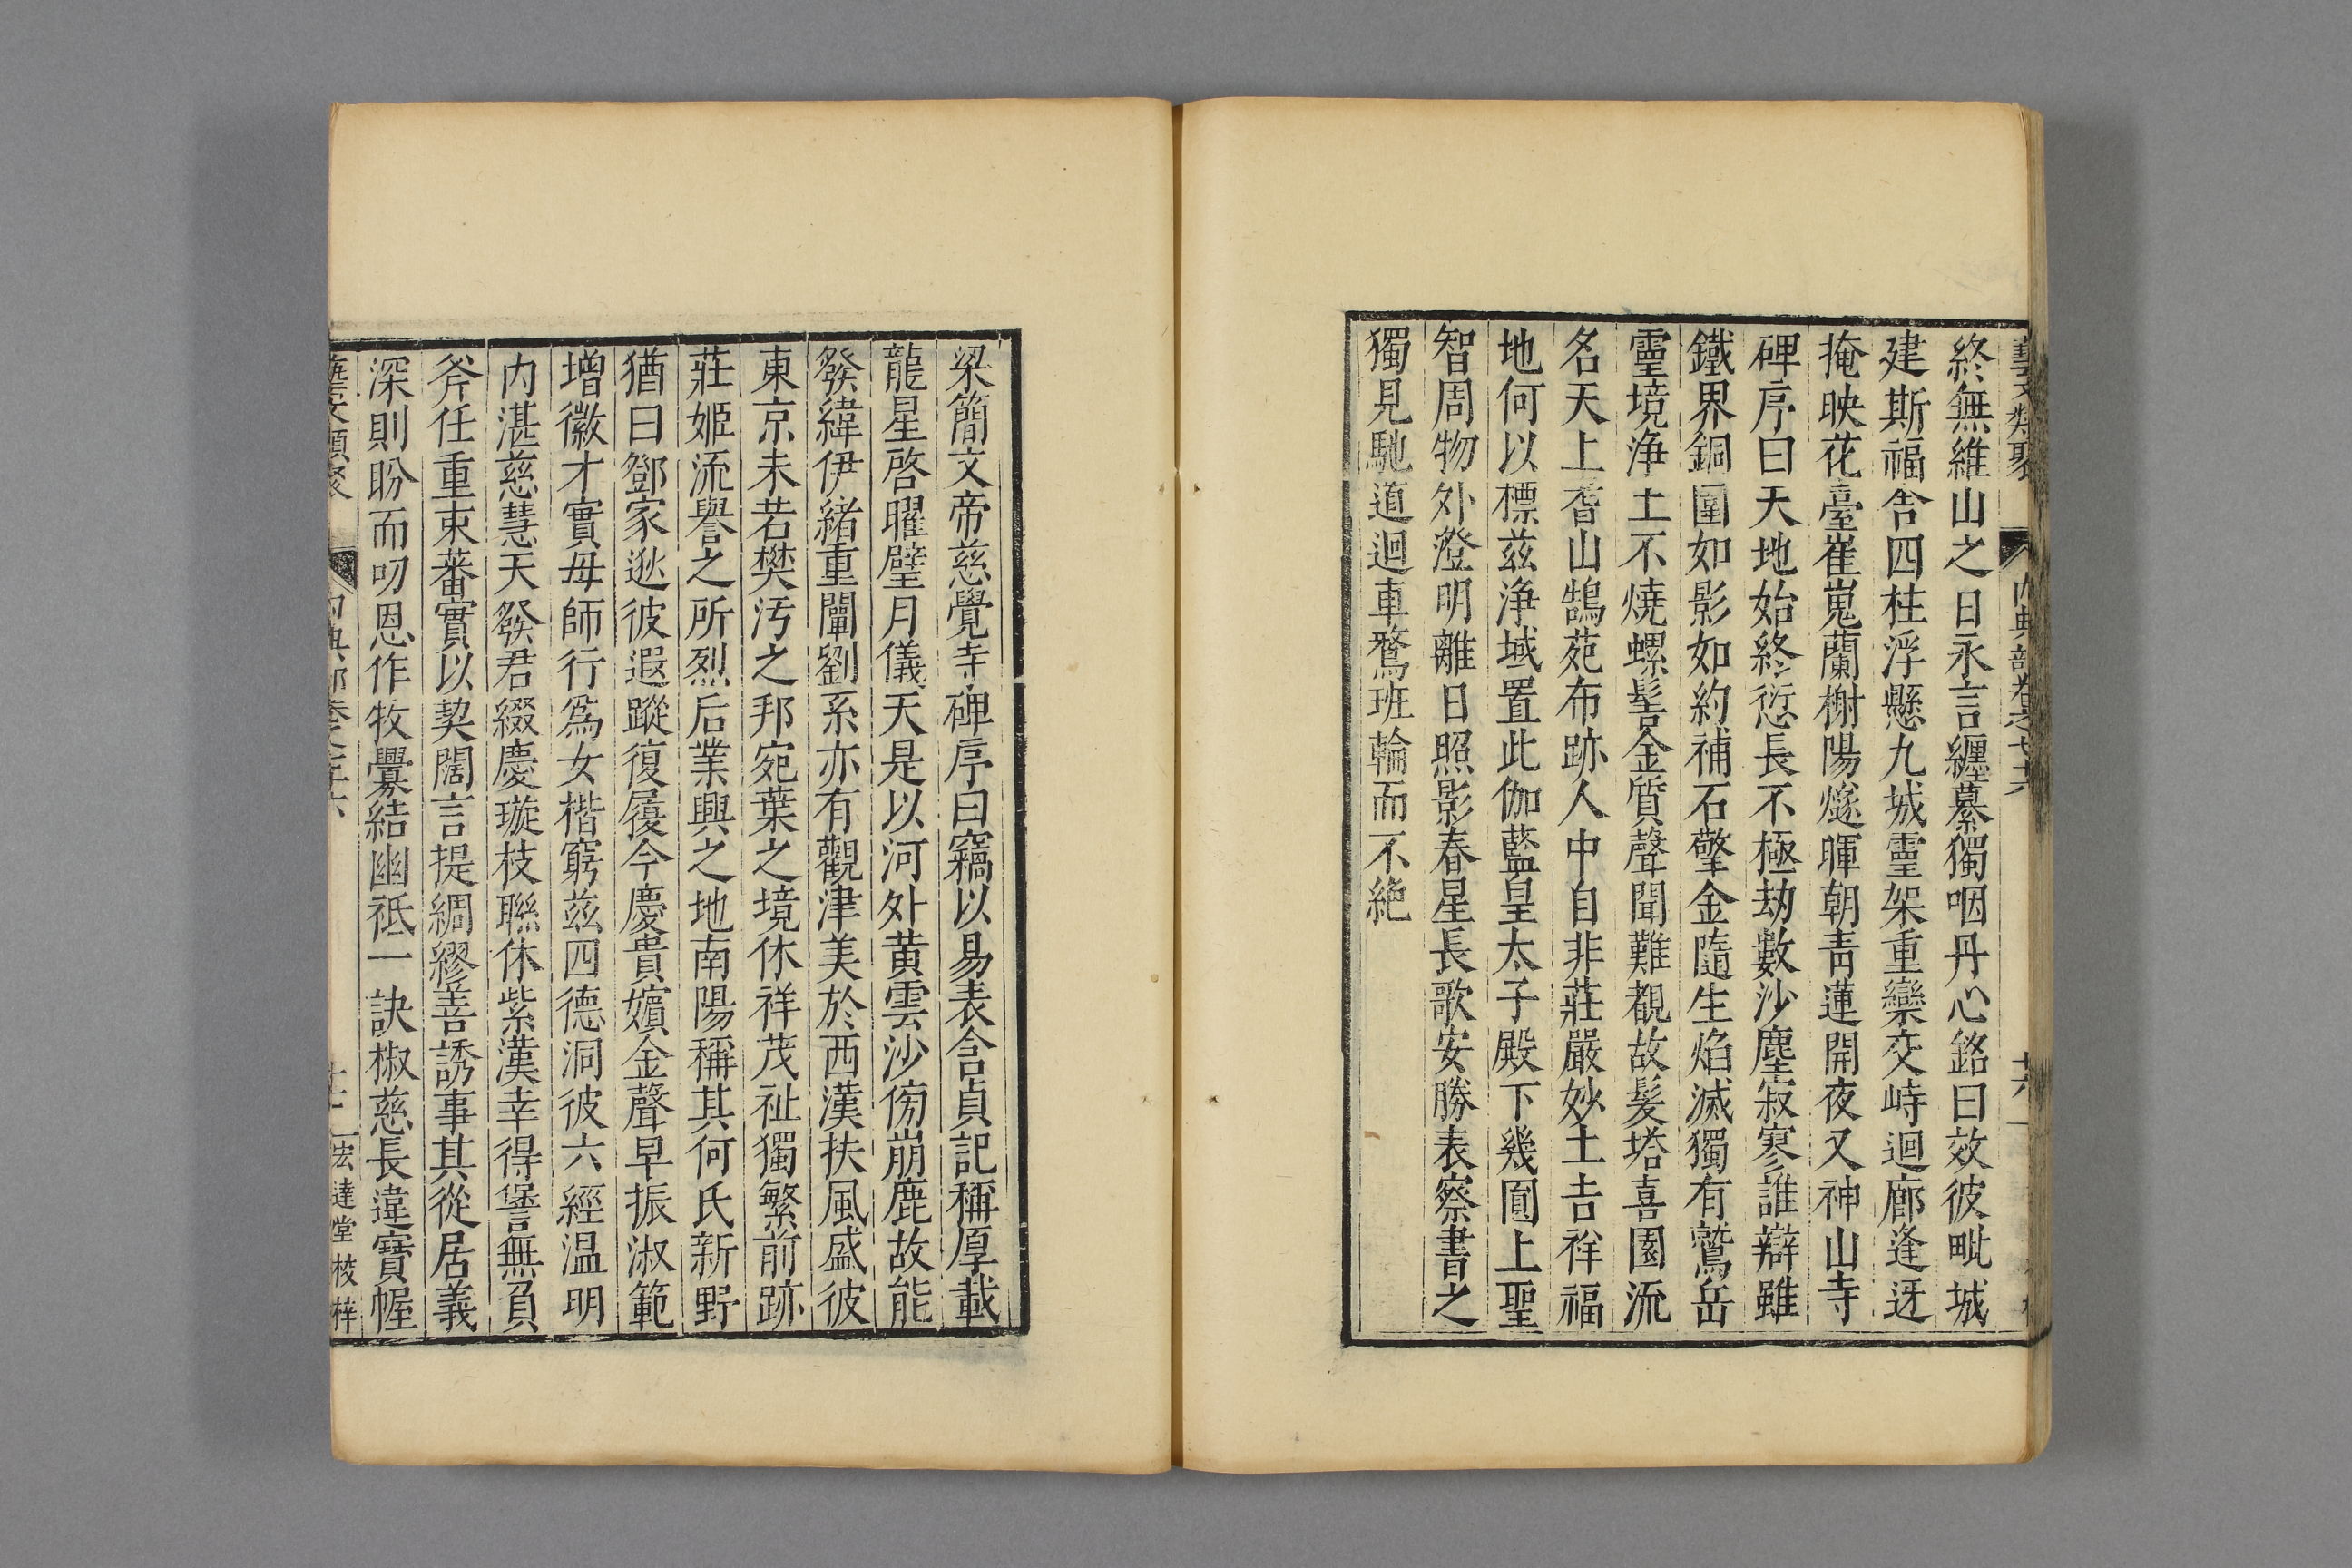 藝文類聚 內典部卷之七十六 十六
終無維山之日永言纏慕獨咽丹心銘曰效彼毗城
建斯福舍四柱浮懸九城靈架重欒交峙迴廊逢迓
掩映花臺崔嵬蘭榭陽燧暉朝靑蓮開夜又神山寺
碑序曰天地始終愆長不極劫數沙塵寂寥誰辯雖
鐵界銅圍如影如約補石擎金隨生焰滅獨有鷲岳
靈境淨土不燒螺髻金質聲聞難覩故髮塔喜園流
名天上耆山鵠苑布跡人中自非莊嚴妙土吉祥福
地何以標茲淨域置此伽藍皇太子殿下幾圓上聖
智周物外澄明離日照影春星長歌安勝表察書之
獨見馳道迴車鶩班輪而不絶
梁簡文帝慈覺寺碑序曰竊以易表含貞記稱厚載
龍星啓曜璧月儀天是以河外黃雲沙傍崩鹿故能
發緯伊緒重闡劉系亦有觀津美於西漢扶風盛彼
東京未若樊汚之邦宛葉之境休祥茂祉獨繁前跡
莊姬流譽之所烈后業興之地南陽稱其何氏新野
猶曰鄧家逖彼遐蹤復履今慶貴嬪金聲早振淑範
增徽才實母師行爲女楷窮茲四德洞彼六經温明
內湛慈慧天發君綴慶璇枝聯休紫漢幸得譽無負
斧任重束蕃實以契闊言提綢繆善誘事其從居義
深則盼而叨恩作牧釁結幽祗一訣椒慈長違寶幄
藝文類聚 內典部卷之七十六 宏達堂校梓